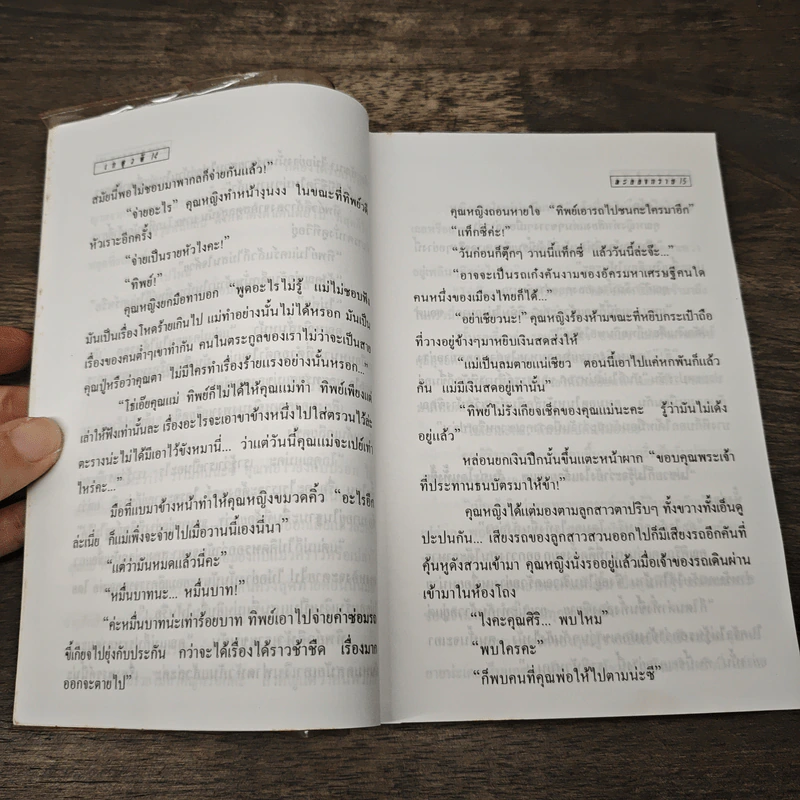 สมัยนี้พอไม่ชอบมาพากลก็จ่ายกันแล้ว!”
“จ่ายอะไร” คุณหญิงทำหน้างุนงง ในขณะที่ทิพย์วลี
หัวเราะอีกครั้ง
“จ่ายเป็นรายหัวไงคะ!”
“ทิพย์!”
คุณหญิงยกมือทาบอก “พูดอะไรไม่รู้ แม่ไม่ชอบฟัง
มันเป็นเรื่องโหดร้ายเกินไป แม่ทำอย่างนั้นไม่ได้หรอก มันเป็น
เรื่องของคนต่ำๆเขาทำกัน คนในตระกูลของเราไม่ว่าจะเป็นสาย
คุณปู่หรือว่าคุณตา ไม่มีใครทำเรื่องร้ายแรงอย่างนั้นหรอก...”
“โธ่เอ๊ยคุณแม่ ทิพย์ก็ไม่ได้ให้คุณแม่ทำ ทิพย์เพียงแต่
เล่าให้ฟังเท่านั้นละ เรื่องอะไรจะเอาขาข้างหนึ่งไปใส่ตรวนไว้ล่ะ
ตะรางน่ะไม่ได้มีเอาไว้ขังหมานี่... ว่าแต่วันนี้คุณแม่จะเปย์เท่า
ไหร่คะ...”
มือที่แบมาข้างหน้าทำให้คุณหญิงขมวดคิ้ว “อะไรอีก
ล่ะเนี่ย ก็แม่เพิ่งจะจ่ายไปเมื่อวานนี้เองนี่นา”
“แต่ว่ามันหมดแล้วนี่คะ”
“หมื่นบาทนะ... หมื่นบาท!”
“ค่ะหมื่นบาทน่ะเท่าร้อยบาท ทิพย์เอาไปจ่ายค่าซ่อมรถ
ขี้เกียจไปยุ่งกับประกัน กว่าจะได้เรื่องได้ราวช้าชืด เรื่องมาก
ออกจะตายไป”
คุณหญิงถอนหายใจ “ทิพย์เอารถไปชนกะใครมาอีก”
“แท็กซี่ค่ะ!”
“วันก่อนก็ตุ๊กๆ วานนี้แท็กซี่ แล้ววันนี้ล่ะจ๊ะ...”
“อาจจะเป็นรถเก๋งคันงามของอัครมหาเศรษฐีคนใด
คนหนึ่งของเมืองไทยก็ได้...”
“อย่าเชียวนะ!” คุณหญิงร้องห้ามขณะที่หยิบกระเป๋าถือ
ที่วางอยู่ข้างๆมาหยิบเงินสดส่งให้
“แม่เป็นลมตายแน่เชียว ตอนนี้เอาไปแค่หกพันก็แล้ว
กัน แม่มีเงินสดอยู่เท่านั้น”
“ทิพย์ไม่รังเกียจเช็คของคุณแม่นะคะ รู้ว่ามันไม่เด้ง
อยู่แล้ว”
หล่อนยกเงินปึกนั้นขึ้นแตะหน้าผาก “ขอบคุณพระเจ้า
ที่ประทานธนบัตรมาให้ข้า!”
คุณหญิงได้แต่มองตามลูกสาวตาปริบๆ ทั้งขวางทั้งเอ็นดู
ปะปนกัน... เสียงรถของลูกสาวสวนออกไปก็มีเสียงรถอีกคันที่
คุ้นหูดังสวนเข้ามา คุณหญิงนั่งรออยู่แล้วเมื่อเจ้าของรถเดินผ่าน
เข้ามาในห้องโถง
“ไงคะคุณศิริ... พบไหม”
“พบใครคะ”
“ก็พบคนที่คุณพ่อให้ไปตามน่ะซี”